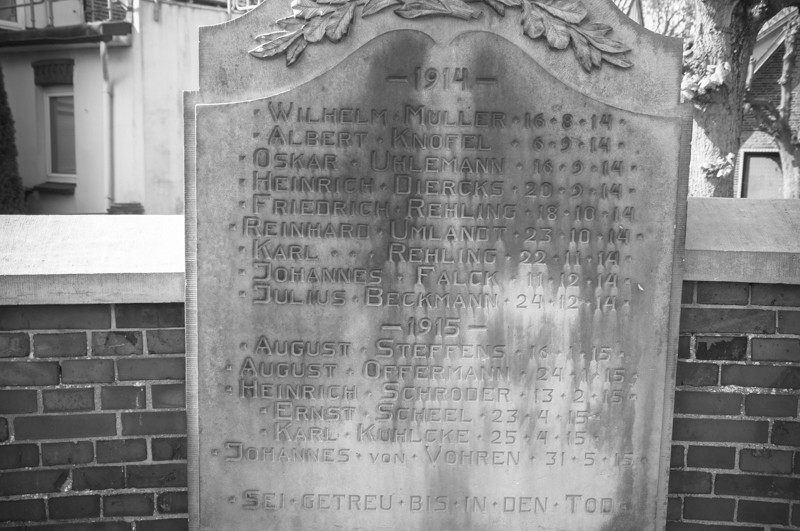 — 1914 —
· WILHELM · MÜLLER · 16 · 8 · 14 ·
· ALBERT · KNOFEL · 6 · 9 · 14 ·
· OSKAR · UHLEMANN · 16 · 9 · 14 ·
· HEINRICH · DIERCKS · 20 · 9 · 14 ·
· FRIEDRICH · REHLING · 18 · 10 · 14 ·
· REINHARD · UMLANDT · 23 · 10 · 14 ·
· KARL · REHLING · 22 · 11 · 14 ·
· JOHANNES · FALCK · 11 · 12 · 14 ·
· JULIUS · BECKMANN · 24 · 12 · 14 ·
— 1915 —
· AUGUST · STEFFENS · 16 · 1 · 15 ·
· AUGUST · OFFERMANN · 24 · 1 · 15 ·
· HEINRICH · SCHRÖDER · 13 · 2 · 15 ·
· ERNST · SCHEEL · 23 · 4 · 15 ·
· KARL · KUHLCKE · 25 · 4 · 15 ·
· JOHANNES · VON · VOHREN · 31 · 5 · 15 ·
· SEI · GETREU · BIS · IN · DEN · TOD ·